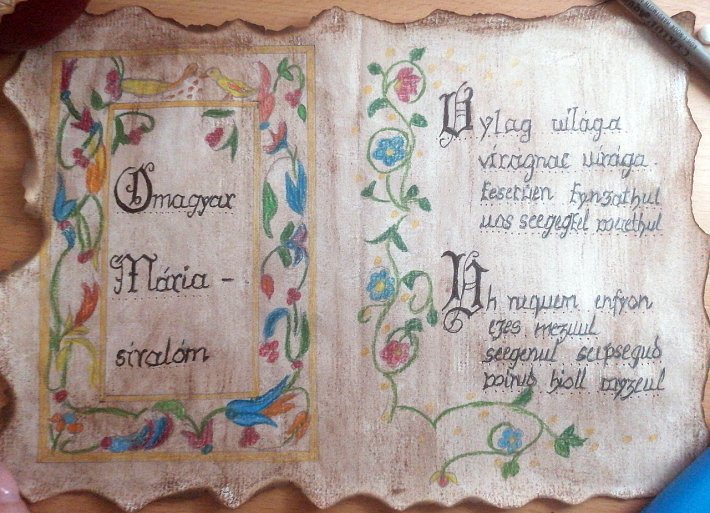 Ómagyar
Mária -
siralóm
Vylag uilága
virágnac uirága.
keserüen kynzathul
uos scegegkel
Uh nequem enfyon
ezes mezuul
scegenul scepsegud
hioll wyzeul